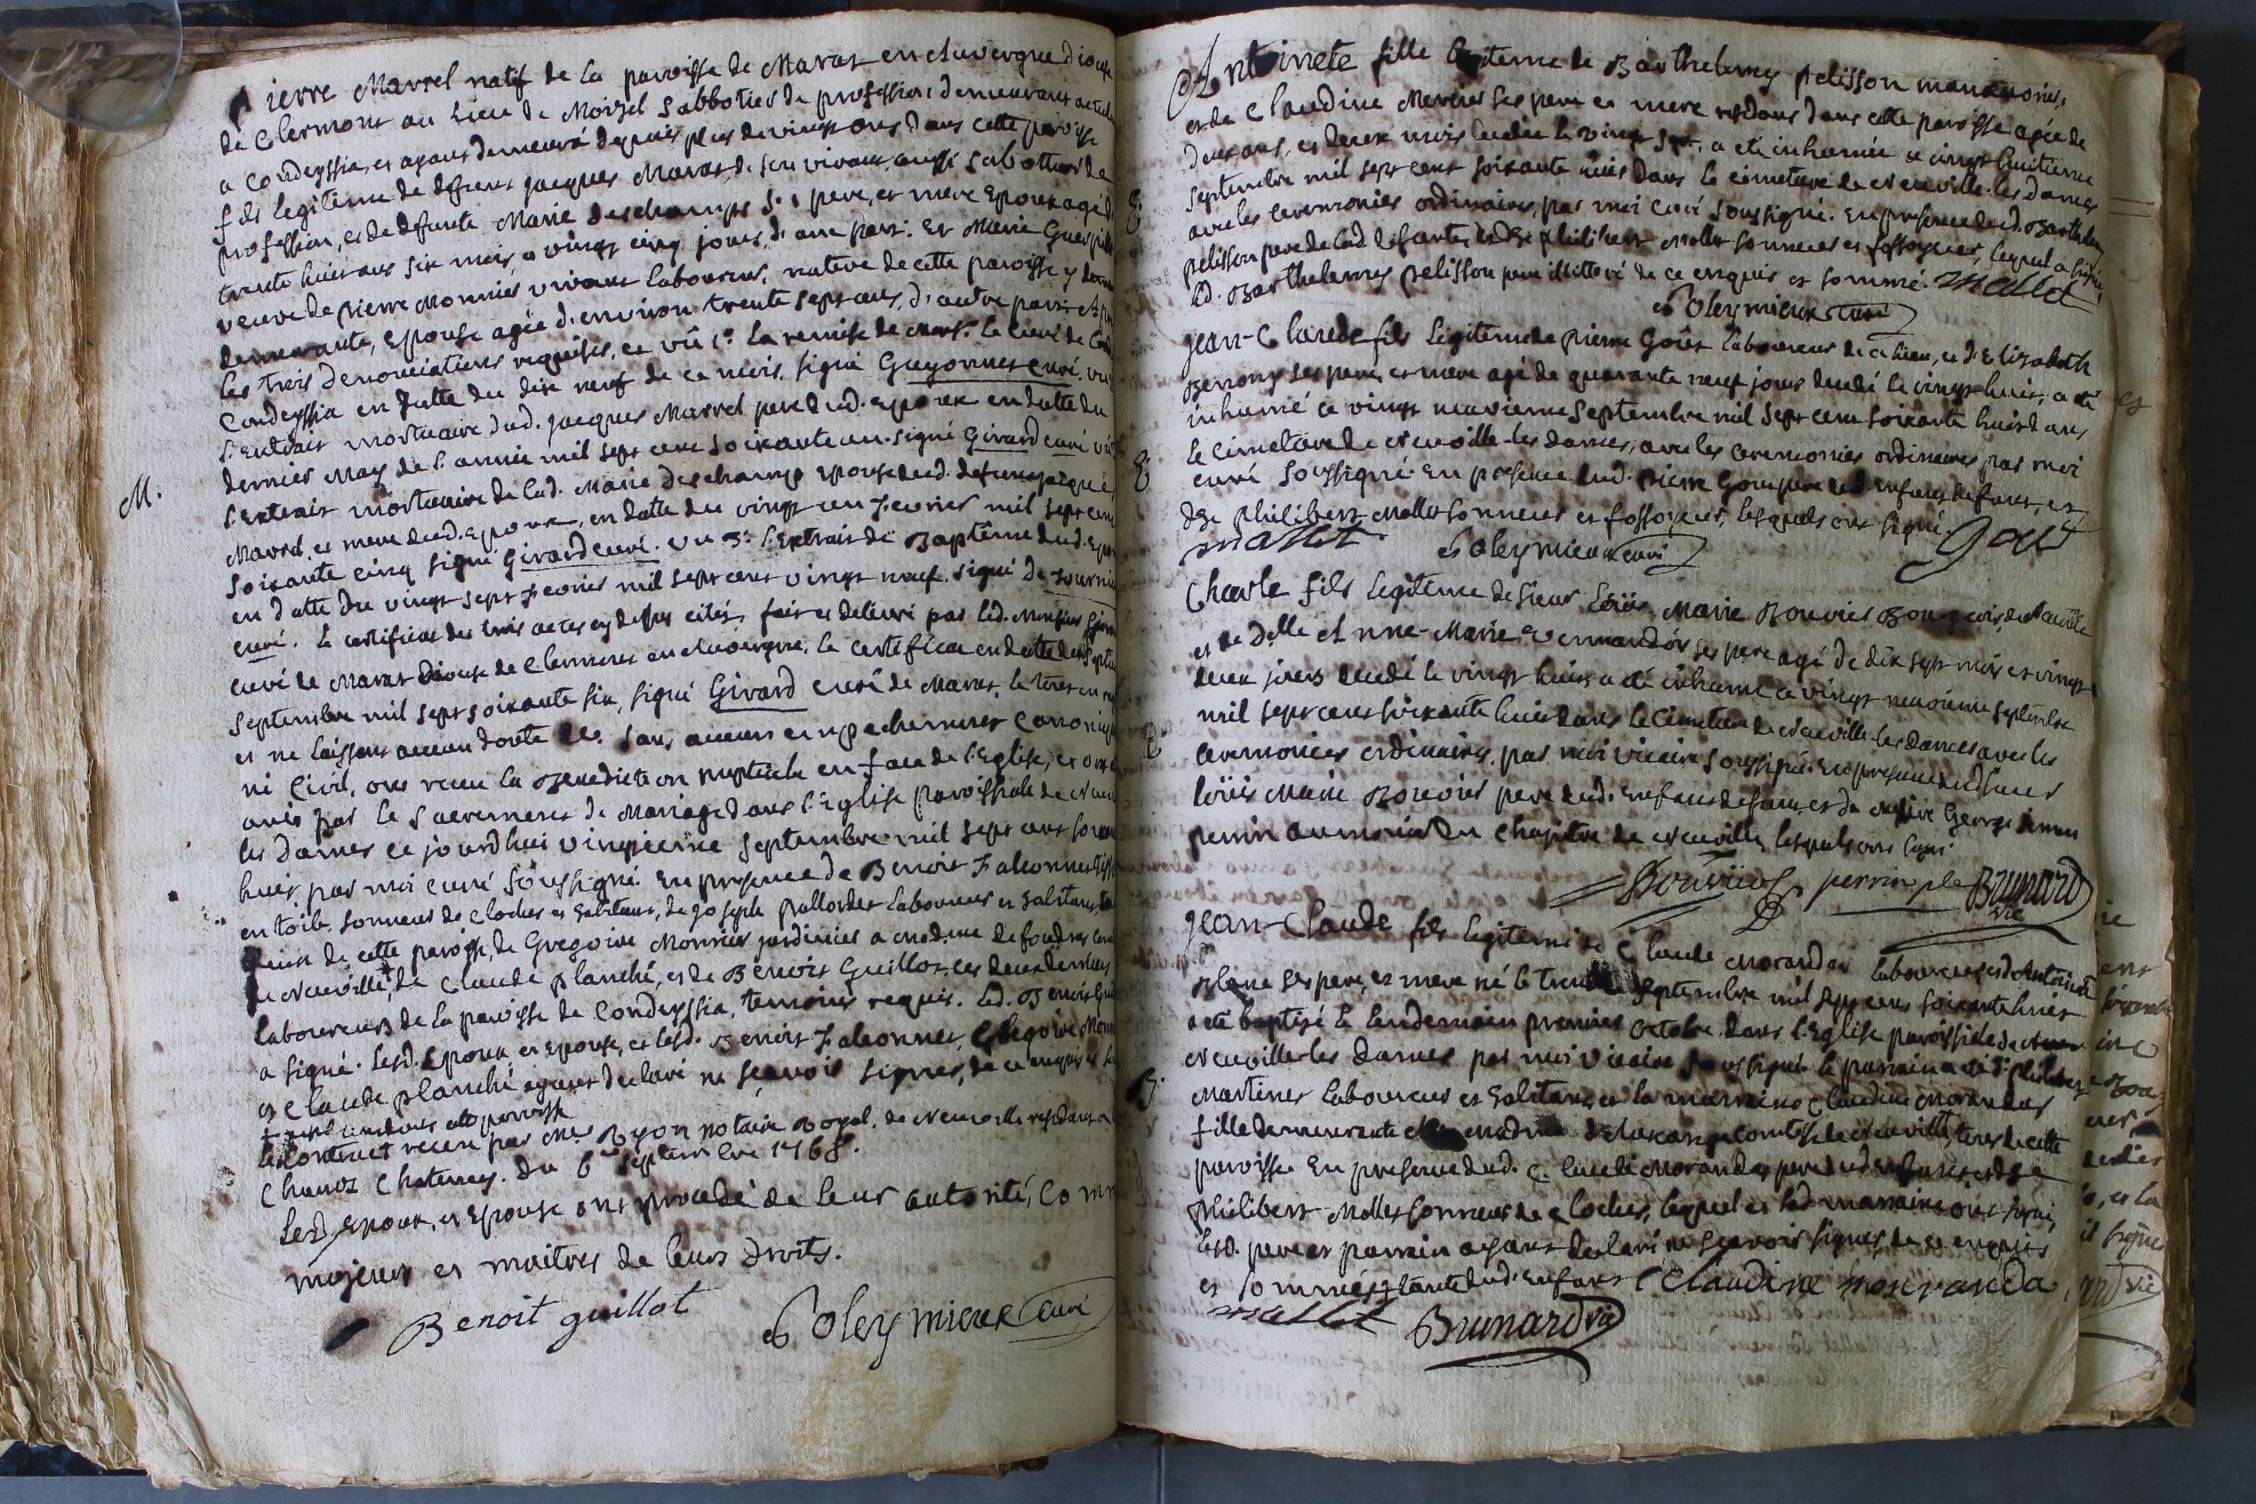 Pierre Marrel natif de la paroisse de Marat en Auvergne diocese
de Clermont au lieu de Moizel sabbotier de profession demeurant
a Condeyssia, et ayant demeuré depuis plus de vingt ans dans cette paroisse
fils legitime de defunt jacques Marat, de son vivant aussi sabottier de
profession, et de defunte Marie deschamps ses pere, et mere Epoux agé de
trente huit ans six mois, vingt cinq jours, d'une part. Et Marie
veuve de pierre Monnier vivant laboureur, native de cette paroisse y
demeurante, Epouse agée d'environ trente sept ans, d'autre part
les trois denonciations requises, et vû 1.° la remise de Mons.r le curé de
Condeyssia en datte du dix neuf de ce mois. signé Guyonnet curé. vu
l'Extrait mortuaire dud. jacques Marrel pere dud. epoux en datte du
dernier May de l'année mil sept cent soixante un. signé Girard curé
M.
l'Extrait mortuaire de lad. Marie deschamps Epouse dud. defunt jacques
Marrel, et mere dud. epoux, en datte du vingt un fevrier mil sept cent
soixante cinq signé Girard curé. vu 3.° l'Extrait de Baptême dud. epoux
en datte du vingt sept fevrier mil sept cent vingt neuf. signé de
curé. le certificat des trois actes cy dessus cités, fait et delivré par led. Monsieur
curé de Marat diocese de Clermont en Auvergne, le certificat en datte
septembre mil sept soixante six, signé Girard curé de Marat. le tout en
et ne laissant aucun doute sans aucun empechement canonique
ni Civil, ont receu la Benediction nuptiale en face de l'Eglise, et ont
unis par le Sacrement de Mariage dans l'Eglise paroissiale de
les dames ce jourd'hui vingtieme septembre mil sept cent soixante
huit, par moi curé soussigné. En presence de Benoit Falconnet
en toile, sonneur de cloches et habitant, de joseph pallordet laboureur et habitant,
de cette paroisse, de Gregoire Monnier jardinier a mad.me de foudras
de Neuville, de Claude planché, et de Benoit Guillot, les deux derniers
laboureurs de la paroisse de Condeyssia, temoins requis. Led. Benoit
a signé. Lesd. Epoux, et Epouse, et lesd. Benoit Falconnet, Gregoire
et Claude planché ayant declaré ne sçavoir signer, de ce enquis et
le Contract receu par M.e Ryon notaire Royal. de Neuville residant a
Chanoz Chatenay. du 6.e septembre 1768.
Lesd. Epoux, et Epouse ont procedé de leur autorité, comme
majeurs et maitres de leurs droits.
Benoit guillot
Coleymieux curé
Antoinete fille legitime de Barthelemy pelisson
et de Claudine Mercier ses pere et mere residans dans cette paroisse agée de
deux ans, et deux mois decedée le vingt sept, a eté inhumée ce vingt huitieme
septembre mil sept cent soixante huit dans le cimetiere de Neuville-les Dames
avec les ceremonies ordinaires, par moi curé soussigné. En presence dud. Barthelemy
E.
pelisson pere de lad. defunte, et de philibert Mollet sonneur et fossoyeur, lequel a signé,
led. Barthelemy pelisson pere illitteré de ce enquis et sommé. mallet
Coleymieux curé
jean-Claude fils legitime de pierre Goût laboureur de ce lieu, et d'Elizabeth
ses pere, et mere agé de quarante neuf jours decedé le vingt huit, a eté
inhumé ce vingt neuvieme septembre mil sept cent soixante huit dans
le cimetiere de Neuville-les-dames, avec les ceremonies ordinaires par moi
E.
curé soussigné. En presence dud. pierre Gout pere dud. enfant defunt, et
de philibert Mollet sonneur et fossoyeur, lesquels ont signé. Gout
mallet. Coleymieux curé
Charle fils legitime de sieur Loüis Marie Bouvier Bourgeois de Neuville
et de D.lle Anne-Marie ses pere agé de dix sept mois et vingt
deux jours decedé le vingt huit a eté inhumé ce vingt neuvieme septembre
mil sept cent soixante huit dans le cimetiere de Neuville-les dames avec les
E.
ceremonies ordinaires, par moi vicaire soussigné. En presence dud. sieur
loüis Marie Bouvier pere dud. enfant defunt, et de messire George
perrin aumonier du chapitre de Neuville, lesquels ont signé
Bouvier perrin p.tre Brunard
vic.
jean-Claude fils legitime de Claude Morandas laboureur, et d'Antoinete
ses pere, et mere né le trente septembre mil sept cent soixante huit
a eté baptisé le lendemain premier octobre dans l'Eglise paroissiale de
Neuville-les dames par moi vicaire soussigné. le parrain a eté philibert
B.
Martinet laboureur et habitant, et la marraine Claudine Morandas
fille demeurante chez madame comtesse de Neuville, tous de cette
paroisse. En presence dud. Claude Morandas pere dud. enfant, et de
philibert Mollet sonneur de cloches, lequel et lad. marraine ont signé,
lesd. pere et parrain ayant declaré ne sçavoir signer de ce enquis
et sommés tante dud. enfant Claudine morranda
mallet Brunard vic